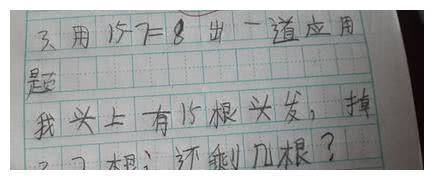 3、用15-7=8出一道应用
题
我头上有15根头发，掉
了7根；还剩几根？